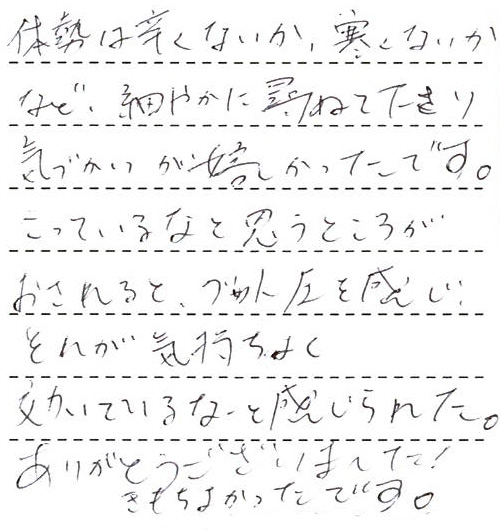 体勢は辛くないか、寒くないか
など、細やかに尋ねてたきり
気づかいが嬉しかったです。
こっているなと思うところが
おされると、グッと圧を感じ
それが気持ちよく
効いているなーと感じられた。
ありがとうございました!
きもちよかったです。